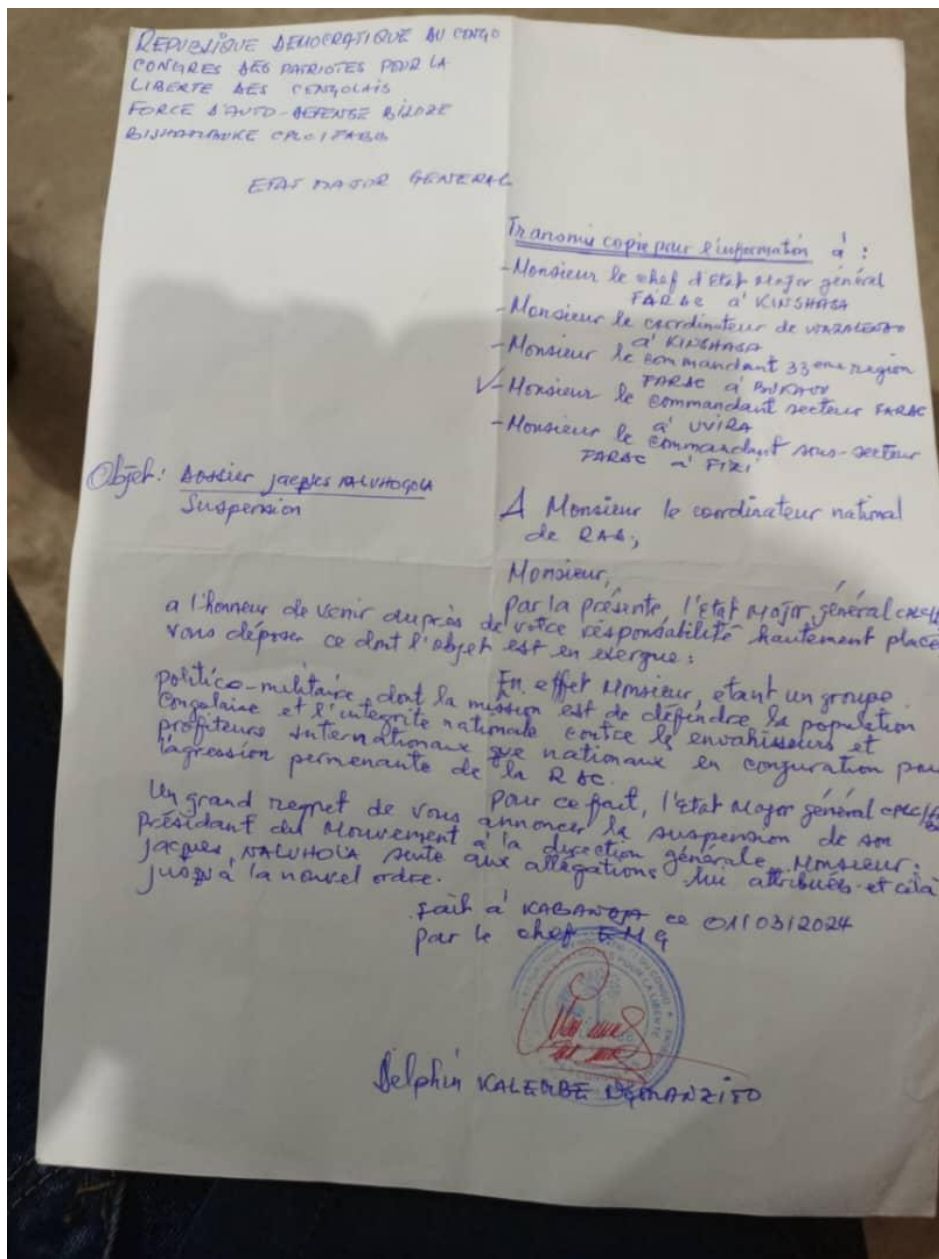 REPUBLIQUE DEMOCRATIQUE DU CONGO
CONGRES DES PATRIOTES POUR LA
LIBERTE DES CONGOLAIS
FORCE D'AUTO-DEFENSE BILOZE
BISHAMBUKE CPLC/FABB
ETAT MAJOR GENERAL
Transmis copie pour l'information à :
- Monsieur le chef d'Etat Major général
FARDC à KINSHASA
- Monsieur le coordinateur de WAZALENDO
à KINSHASA
- Monsieur le commandant 33eme region
FARDC à BUKAVU
- Monsieur le commandant secteur FARDC
à UVIRA
- Monsieur le commandant sous-secteur
FARDC à FIZI
Objet: Dossier jacques
Suspension
A Monsieur le coordinateur national
de
Monsieur,
par la présente, l'etat Major général
a l'honneur de venir auprès de votre résponsabilité hautement placé
vous déposer ce dont l'objet est en exergue :
En effet Monsieur, etant un groupe
politico-militaire dont la mission est de défendre la population
Congolaise et l'integrité nationale contre les envahisseurs et
profiteurs internationaux que nationaux en conjuration pour
l'agression permenante de la RDC.
Pour ce fait, l'etat Major général
Un grand regret de vous annoncer la suspension de son
président du Mouvement à la direction générale Monsieur :
jacques NALUHOLA suite aux allégations lui attribués et cela
jusqu'à la nouvel ordre.
Fait à ce 01/03/2024
par le chef EMG
Delphin KALEMBE